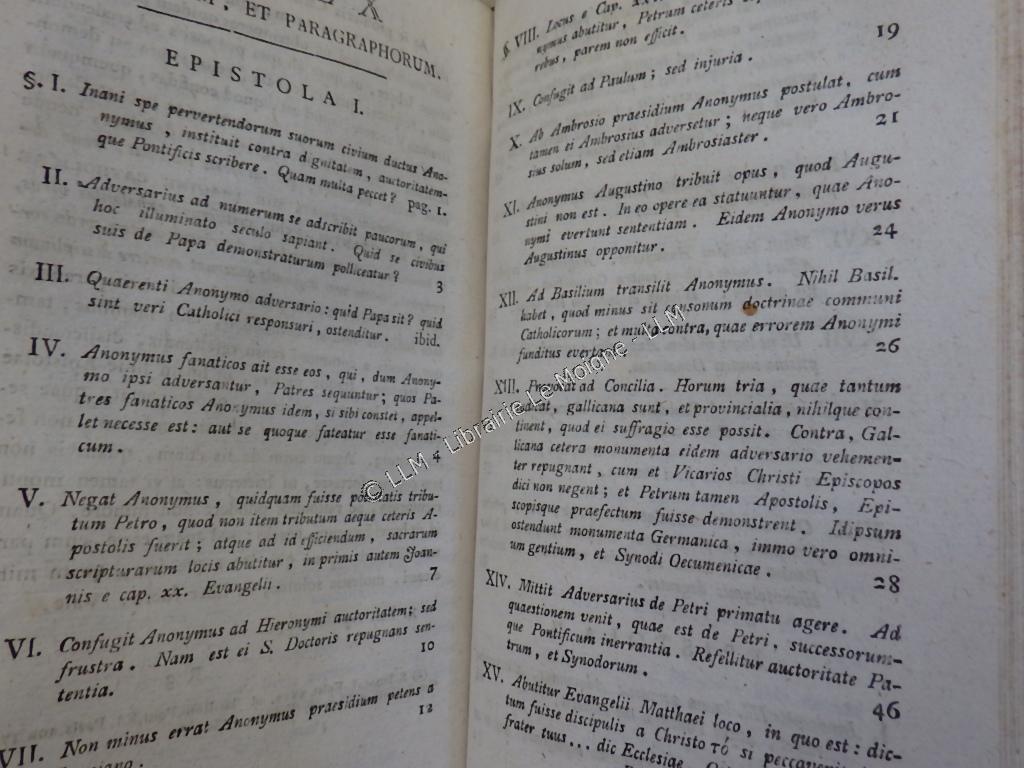 ET PARAGRAPHORUM.
EPISTOLA I.
§. I. Inani spe pervertendorum suorum civium ductus Ano-
nymus, instituit contra dignitatem, auctoritatem-
que Pontificis scribere. Quam multa peccet? pag. 1.
II. Adversarius ad numerum se adscribit paucorum, qui
hoc illuminato seculo sapiant. Quid se civibus
suis de Papa demonstraturum polliceatur? 3
III. Quaerenti Anonymo adversario: quid Papa sit? quid
sint veri Catholici responsuri, ostenditur. ibid.
IV. Anonymus fanaticos ait esse eos, qui, dum Anony-
mo ipsi adversantur, Patres sequuntur; quos Pa-
tres fanaticos Anonymus idem, si sibi constet, appel-
let necesse est: aut se quoque fateatur esse fanati-
cum. 4
V. Negat Anonymus, quidquam fuisse potestatis tribu-
tum Petro, quod non item tributum aeque ceteris A-
postolis fuerit; atque ad id efficiendum, sacrarum
scripturarum locis abutitur, in primis autem Joan-
nis e cap. xx. Evangelii. 7
VI. Confugit Anonymus ad Hieronymi auctoritatem; sed
frustra. Nam est ei S. Doctoris repugnans sen-
tentia. 10
VII. Non minus errat Anonymus praesidium petens a
12
§. VIII. Locus e Cap.
nymus abutitur, Petrum ceteris
rebus, parem non efficit. 19
IX. Confugit ad Paulum; sed injuria.
X. Ab Ambrosio praesidium Anonymus postulat, cum
tamen ei Ambrosius adversetur; neque vero Ambro-
sius solum, sed etiam Ambrosiaster. 21
XI. Anonymus Augustino tribuit opus, quod Augu-
stini non est. In eo opere ea statuuntur, quae Ano-
nymi evertunt sententiam. Eidem Anonymo verus
Augustinus opponitur. 24
XII. Ad Basilium transilit Anonymus. Nihil Basil.
habet, quod minus sit consonum doctrinae communi
Catholicorum; et multa contra, quae errorem Anonymi
funditus 26
XIII. Provocat ad Concilia. Horum tria, quae tantum
gallicana sunt, et provincialia, nihilque con-
tinent, quod ei suffragio esse possit. Contra, Gal-
licana cetera monumenta eidem adversario vehemen-
ter repugnant, cum et Vicarios Christi Episcopos
dici non negent; et Petrum tamen Apostolis, Epi-
scopisque praefectum fuisse demonstrent. Idipsum
ostendunt monumenta Germanica, immo vero omni-
um gentium, et Synodi Oecumenicae. 28
XIV. Mittit Adversarius de Petri primatu agere. Ad
quaestionem venit, quae est de Petri, successorum-
que Pontificum inerrantia. Refellitur auctoritate Pa-
trum, et Synodorum. 46
XV. Abutitur Evangelii Matthaei loco, in quo est: dic-
tum fuisse discipulis a Christo τό si peccaverit
frater tuus... dic Ecclesiae.
© LLM - Librairie Le Moigne - LLM